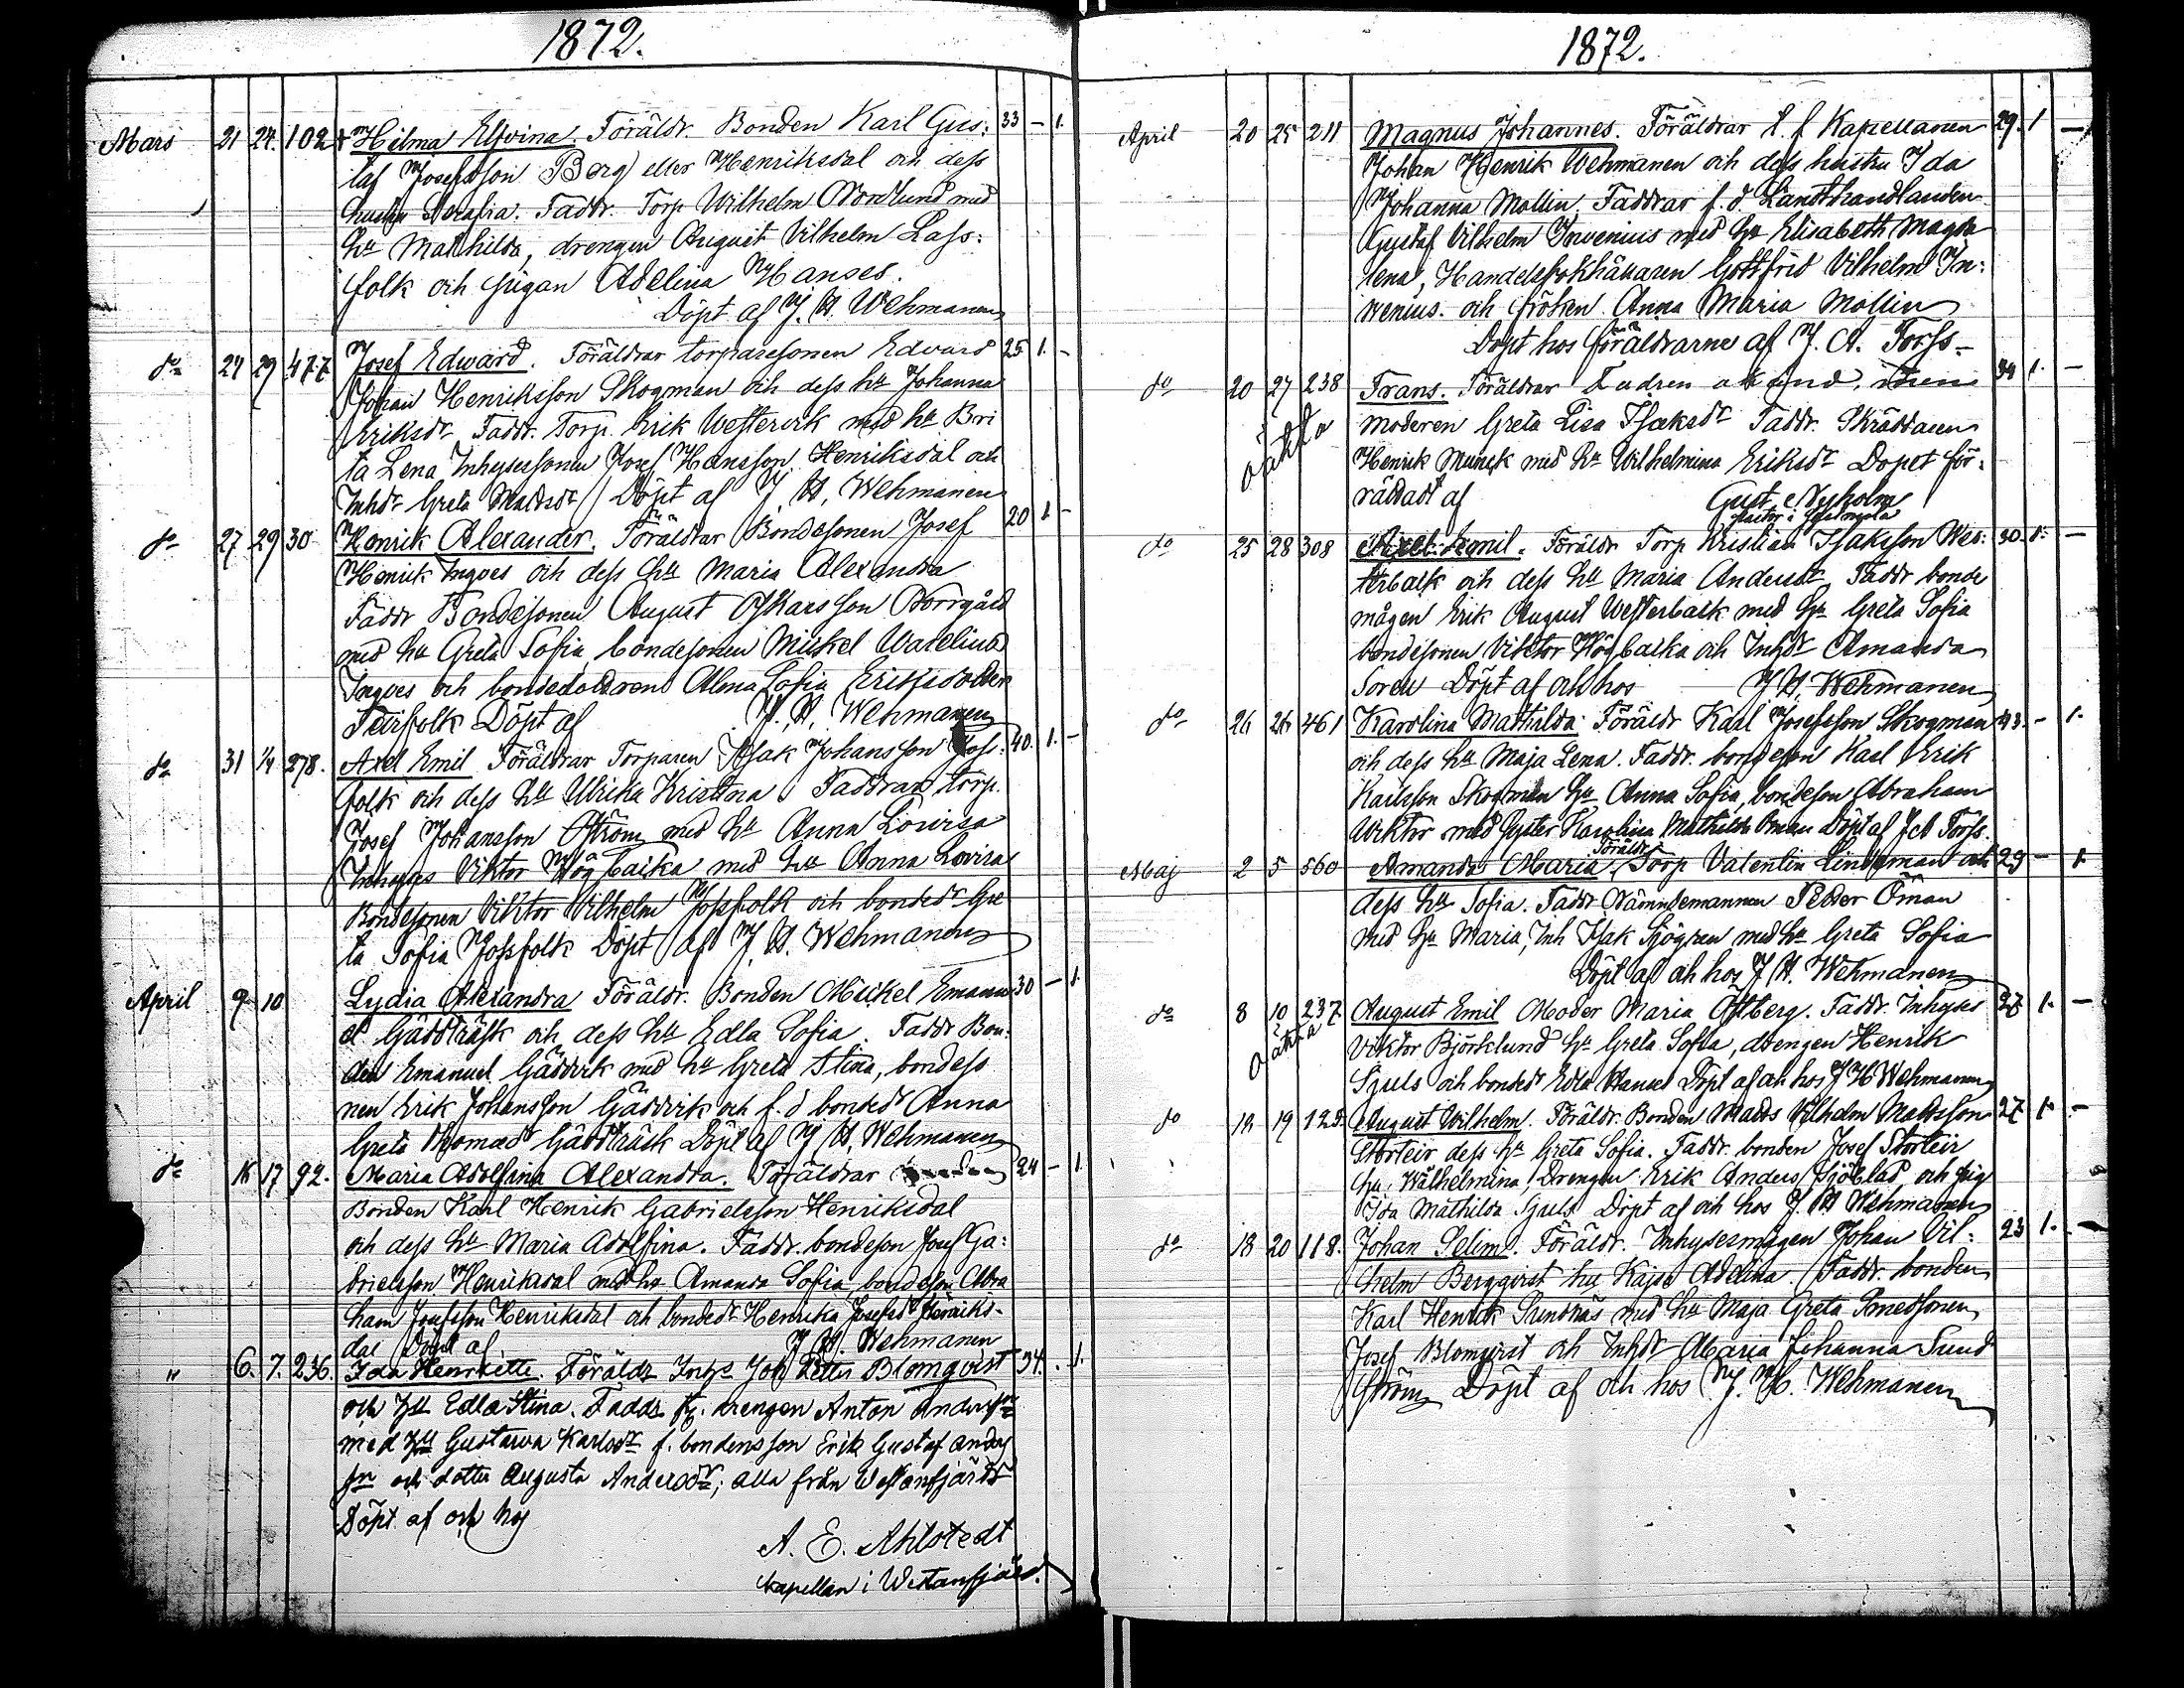 1872.
Mars 21 24. 102 Hilma Elvina. Föräldr. Bonden Karl Gus: 33 – 1.
taf Josefsson Berg eller Henriksdal och dess
hustru Serafia. Faddr. Torp Wilhelm Nordlund med
hu Mathilda, drengen August Vilhelm Lass:
folk och pigan Adelina Hanses.
Döpt af J. H. Wehmanen
do 24 29 477 Josef Edward. Föräldrar torparesonen Edvard 25 1. –
Johan Henriksson Skogman och dess hu Johanna
Eriksdr Faddr. Torp. Erik Westervik med hu Bri
ta Lena Inhysessonen Josef Hansson Henriksdal och
Inhdr Greta Madsdr Döpt af J. H. Wehmanen
do 27 29 30 Henrik Alexander. Föräldrar Bondesonen Josef 20 1 –
Henrik Ingves och dess hu Maria Alexandra
Faddr Bondesonen August Oskarsson Norrgård
med hu Greta Sofia, bondesonen Mickel Warelius
Ingves och bondedottren Alma Sofia Eriksdotter
Teirfolk Döpt af J. H. Wehmanen
do 31 1/4 278. Axel Emil Föräldrar Torparen Isak Johansson Joss: 40. 1. –
folk och dess hu Ulrika Kristina Faddrar torp.
Josef Johansson Öström med hu Anna Lovisa
Inhyses Viktor Högbacka med hu Anna Lovisa
Bondesonen Viktor Vilhelm Jossfolk och bondedr Gre
ta Sofia Jossfolk Döpt af J. H. Wehmanen
April 9 10 Lydia Alexandra Föräldr. Bonden Mickel Emanu 30 – 1.
el Gäddträsk och dess hu Edla Sofia. Faddr Bon:
den Emanuel Gäddvik med hu Greta Stina, bondess
nen Erik Johansson Gäddvik och f. d bondedr Anna
Greta Thomasdr Gäddträsk Döpt af J. H. Wehmanen
do 16 17 92. Maria Adolfina Alexandra. Föräldrar 24 – 1.
Bonden Karl Henrik Gabrielsson Henriksdal
och dess hu Maria Adolfina. Faddr. bondeson Josef Ga:
brielsson Henriksdal med hu Amanda Sofia, bondeson Abra
ham Josefsson Henriksdal och bondedr Henrika Josefsdr Henriks-
dal Döpt af J. H. Wehmanen
" 6. 7. 236. Ida Henriette. Föräldr Inhys Joh Petter Blomqvist 34. . 1.
och hu Edla Stina. Faddr drengen Anton Andersson
med hu Gustava Karlsdr f. bondensson Erik Gustaf Anders
sn och dotter Augusta Andersdr; alla från Westanfjärd
Döpt af och hos
A. E. Ahlstedt
kapellan i Westanfjärd.
1872.
April 20 25 211 Magnus Johannes. Föräldrar t. f Kapellanen 29. 1 –
Johan Henrik Wehmanen och dess hustru Ida
Johanna Mollin. Faddrar f. d Landthandlanden
Gustaf Vilhelm Invenius med hu Elisabeth Magda
lena, Handelsbokhållaren Gottfrid Vilhelm In:
venius och fröken Anna Maria Mollin
Döpt hos föräldrarne af J. A. Forss-
do 20 27 238 Frans. Föräldrar Fadren okänd, 34 1. –
oäkta moderen Greta Lisa Isaksdr Faddr. Skräddaren
Henrik Munck med hu Wilhelmina Eriksdr Dopet för:
rättadt af Gust. Nyholm
do 25 28 308 Axel Emil. Föräldr Torp Kristian Isaksson Wes: 30. 1. –
terback och dess hu Maria Andersdr Faddr bonde
mågen Erik August Westerback med hu Greta Sofia
bondesonen Viktor Högbacka och Inhdr Amanda
Soren Döpt af och hos J. H. Wehmanen
do 26 26 461 Karolina Mathilda Föräldr Karl Josefsson Skogman 43. – 1.
och dess hu Maja Lena. Faddr. bondeson Karl Erik
Karlsson Skogman hu Anna Sofia, bondeson Abraham
Wiktor med syster Karolina Mathilda Öman Döpt af J A Forss.
Föräldr
Maj 2 5 560 Amanda Maria, Torp Valentin Lindeman och 29 – 1.
dess hu Sofia. Faddr Nämndemannen Petter Öman
med hu Maria, Inh Isak Sjögren med hu Greta Sofia
Döpt af och hos J. H. Wehmanen
do 8 10 237. August Emil Moder Maria Östberg. Faddr. Inhyses 27 1. –
oäkta Viktor Björklund hu Greta Sofia, drengen Henrik
Sjuls och bondedr Edla Hanses Döpt af och hos J. H. Wehmanen
do 12 19 125. August Wilhelm. Föräldr. Bonden Madts Vilhelm Madsson 27 1. –
Storteir dess hu Greta Sofia. Faddr. bonden Josef Storteir
hu Wilhelmina, Drengen Erik Anders Sjöblad, och pig
Ida Mathilda Sjuls Döpt af och hos J. H Wehmanen
do 18 20 118. Johan Selim. Föräldr. Inhysesmågen Johan Vil: 23 1. –
helm Bergqvist hu Kajsa Adelina. Faddr. bonden
Karl Henrik Sundnäs med hu Maja Greta Smedsonen
Josef Blomqvist och Inhdr Maria Johanna Sund
ström Döpt af och hos J. H. Wehmanen